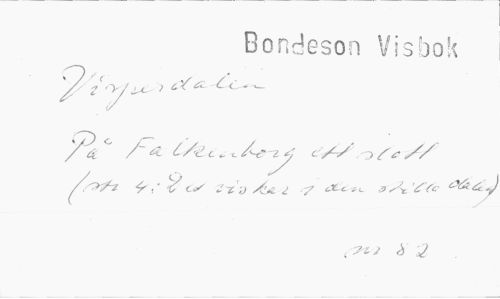 Bondeson Visbok
Visperdalen
På Falkenborg ett slott
(str 4: Det viskar i den stilla dalen)
nr 82